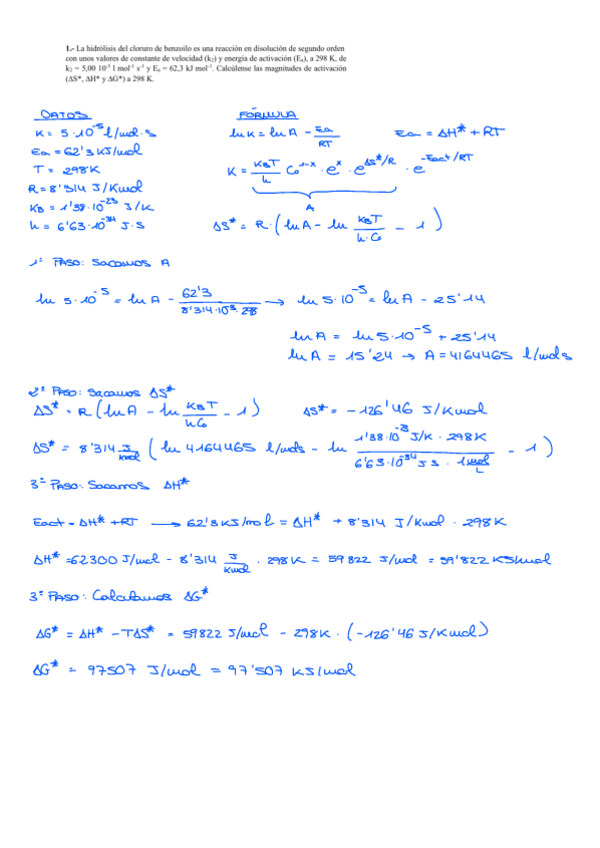 1.- La hidrólisis del cloruro de benzoilo es una reacción en disolución de segundo orden
con unos valores de constante de velocidad (k₂) y energía de activación (Eₐ), a 298 K, de
k₂ = 5,00 10⁻⁵ l mol⁻¹ s⁻¹ y Eₐ = 62,3 kJ mol⁻¹. Calcúlense las magnitudes de activación
(ΔS*, ΔH* y ΔG*) a 298 K.
DATOS
FÓRMULA
K = 5·10⁻⁵ l/mol·s
Ea = 62'3 KJ/mol
T = 298K
R = 8'314 J/Kmol
KB = 1'38·10⁻²³ J/K
h = 6'63·10⁻³⁴ J·S
ln K = ln A - Ea/RT
Ea = ΔH* + RT
K = KBT/h C₀¹⁻ˣ · eˣ · e^ΔS*/R · e^-Eact/RT
A
ΔS* = R · (ln A - ln KBT/h·C₀ - 1)
1º PASO: Sacamos A
ln 5·10⁻⁵ = ln A - 62'3/8'314·10⁻³·298 → ln 5·10⁻⁵ = ln A - 25'14
ln A = ln 5·10⁻⁵ + 25'14
ln A = 15'24 → A = 4164465 l/mols
2º PASO: Sacamos ΔS*
ΔS* = R (ln A - ln KBT/hC₀ - 1) ΔS* = -126'46 J/Kmol
ΔS* = 8'314 J/Kmol (ln 4164465 l/mols - ln 1'38·10⁻²³ J/K · 298K/6'63·10⁻³⁴ J·S · 1mol/L - 1)
3º PASO: Sacamos ΔH*
Eact = ΔH* + RT → 62'3 KJ/mol = ΔH* + 8'314 J/Kmol · 298K
ΔH* = 62300 J/mol - 8'314 J/Kmol · 298K = 59822 J/mol = 59'822 KJ/mol
3º PASO: Calculamos ΔG*
ΔG* = ΔH* - TΔS* = 59822 J/mol - 298K · (-126'46 J/Kmol)
ΔG* = 97507 J/mol = 97'507 KJ/mol